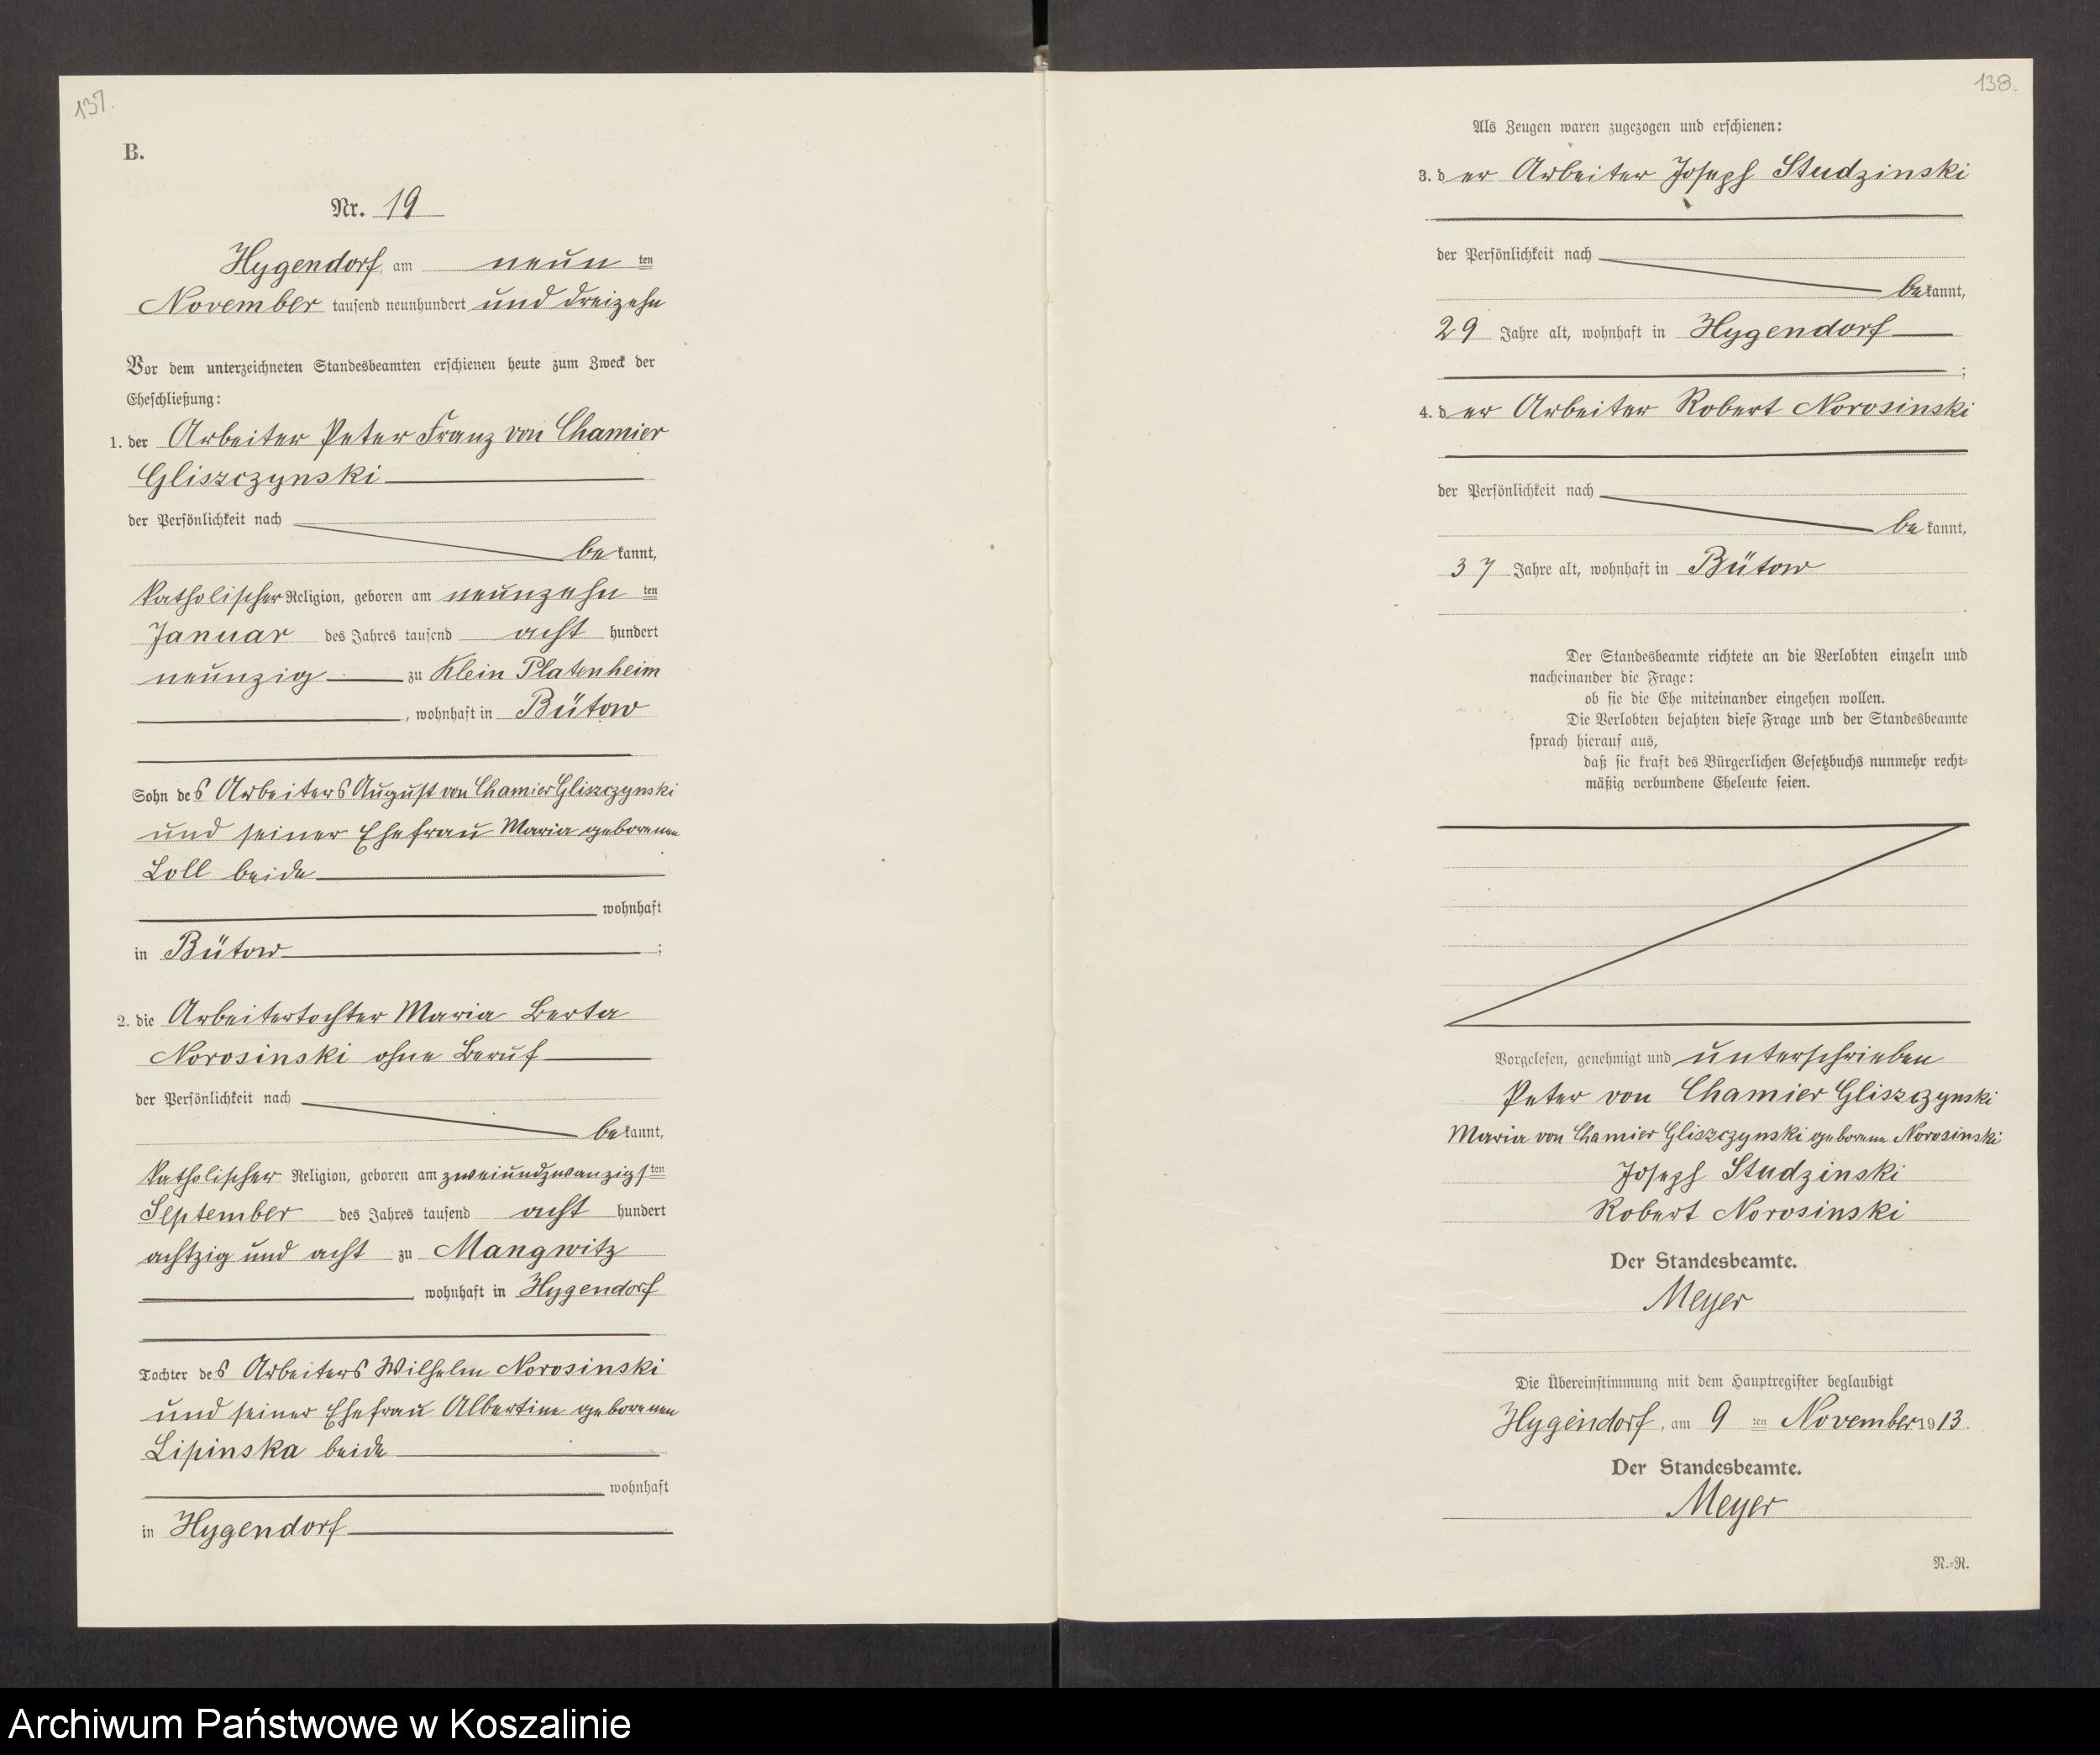 137.
B.
Nr. 19
Hygendorf, am neun ten
November tausend neunhundert und dreizehn
Vor dem unterzeichneten Standesbeamten erschienen heute zum Zweck der
Eheschließung:
1. der Arbeiter Peter Franz von Chamier
Gliszczynski
der Persönlichkeit nach
be kannt,
katholischer Religion, geboren am neunzehn ten
Januar des Jahres tausend acht hundert
neunzig zu Klein Platenheim
, wohnhaft in Bütow
Sohn des Arbeiters August von Chamier Gliszczynski
und seiner Ehefrau Maria geborenen
Loll beide
wohnhaft
in Bütow ;
2. die Arbeitertochter Maria Berta
Norosinski ohne Beruf
der Persönlichkeit nach
be kannt,
katholischer Religion, geboren am zweiundzwanzigsten
September des Jahres tausend acht hundert
achtzig und acht zu Mangwitz
, wohnhaft in Hygendorf
Tochter des Arbeiters Wilhelm Norosinski
und seiner Ehefrau Albertine geborenen
Lipinska beide
wohnhaft
in Hygendorf
138.
Als Zeugen waren zugezogen und erschienen:
3. der Arbeiter Joseph Studzinski
der Persönlichkeit nach
be kannt,
29 Jahre alt, wohnhaft in Hygendorf
;
4. der Arbeiter Robert Norosinski
der Persönlichkeit nach
be kannt,
37 Jahre alt, wohnhaft in Bütow
Der Standesbeamte richtete an die Verlobten einzeln und
nacheinander die Frage:
ob sie die Ehe miteinander eingehen wollen.
Die Verlobten bejahten diese Frage und der Standesbeamte
sprach hierauf aus,
daß sie kraft des Bürgerlichen Gesetzbuchs nunmehr recht-
mäßig verbundene Eheleute seien.
Vorgelesen, genehmigt und unterschrieben
Peter von Chamier Gliszczynski
Maria von Chamier Gliszczynski geborene Norosinski
Joseph Studzinski
Robert Norosinski
Der Standesbeamte.
Meyer
Die Übereinstimmung mit dem Hauptregister beglaubigt
Hygendorf, am 9 ten November 1913.
Der Standesbeamte.
Meyer
N.-R.
Archiwum Państwowe w Koszalinie